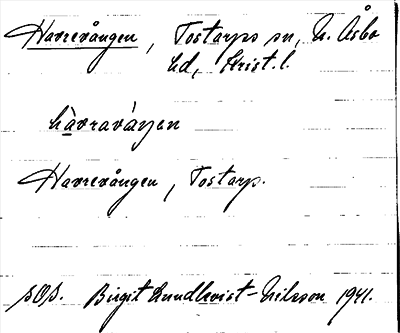 Havrevången, Tostarps sn, N. Åsbo
hd, Krist. l.
hàvravàŋen
Havrevången, Tostarp.
sOs. Birgit Lundkvist-Nilsson 1941.